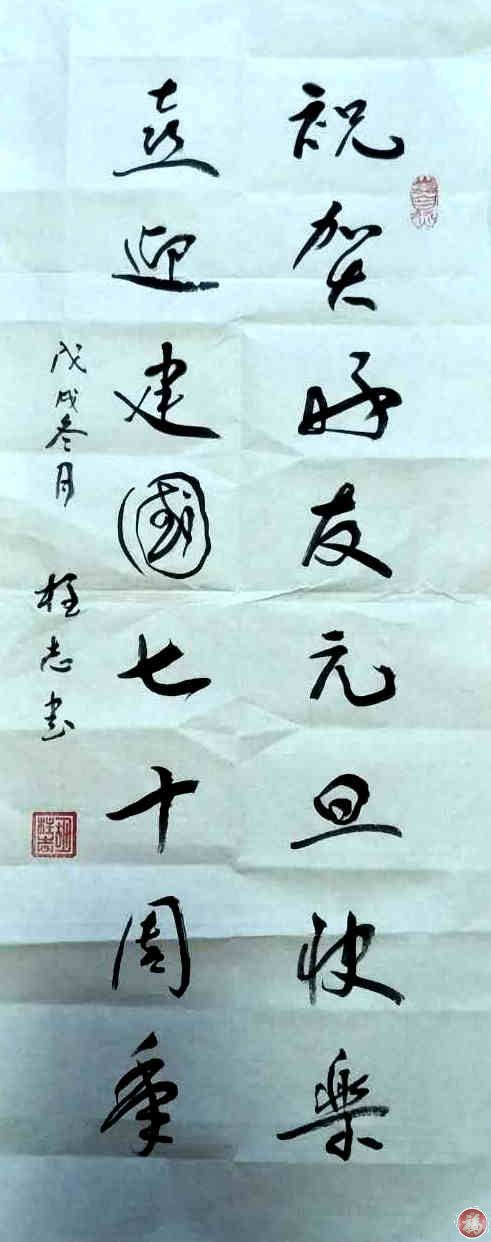 祝贺好友元旦快樂
喜迎建國七十周年
戊戌冬月 桂志书